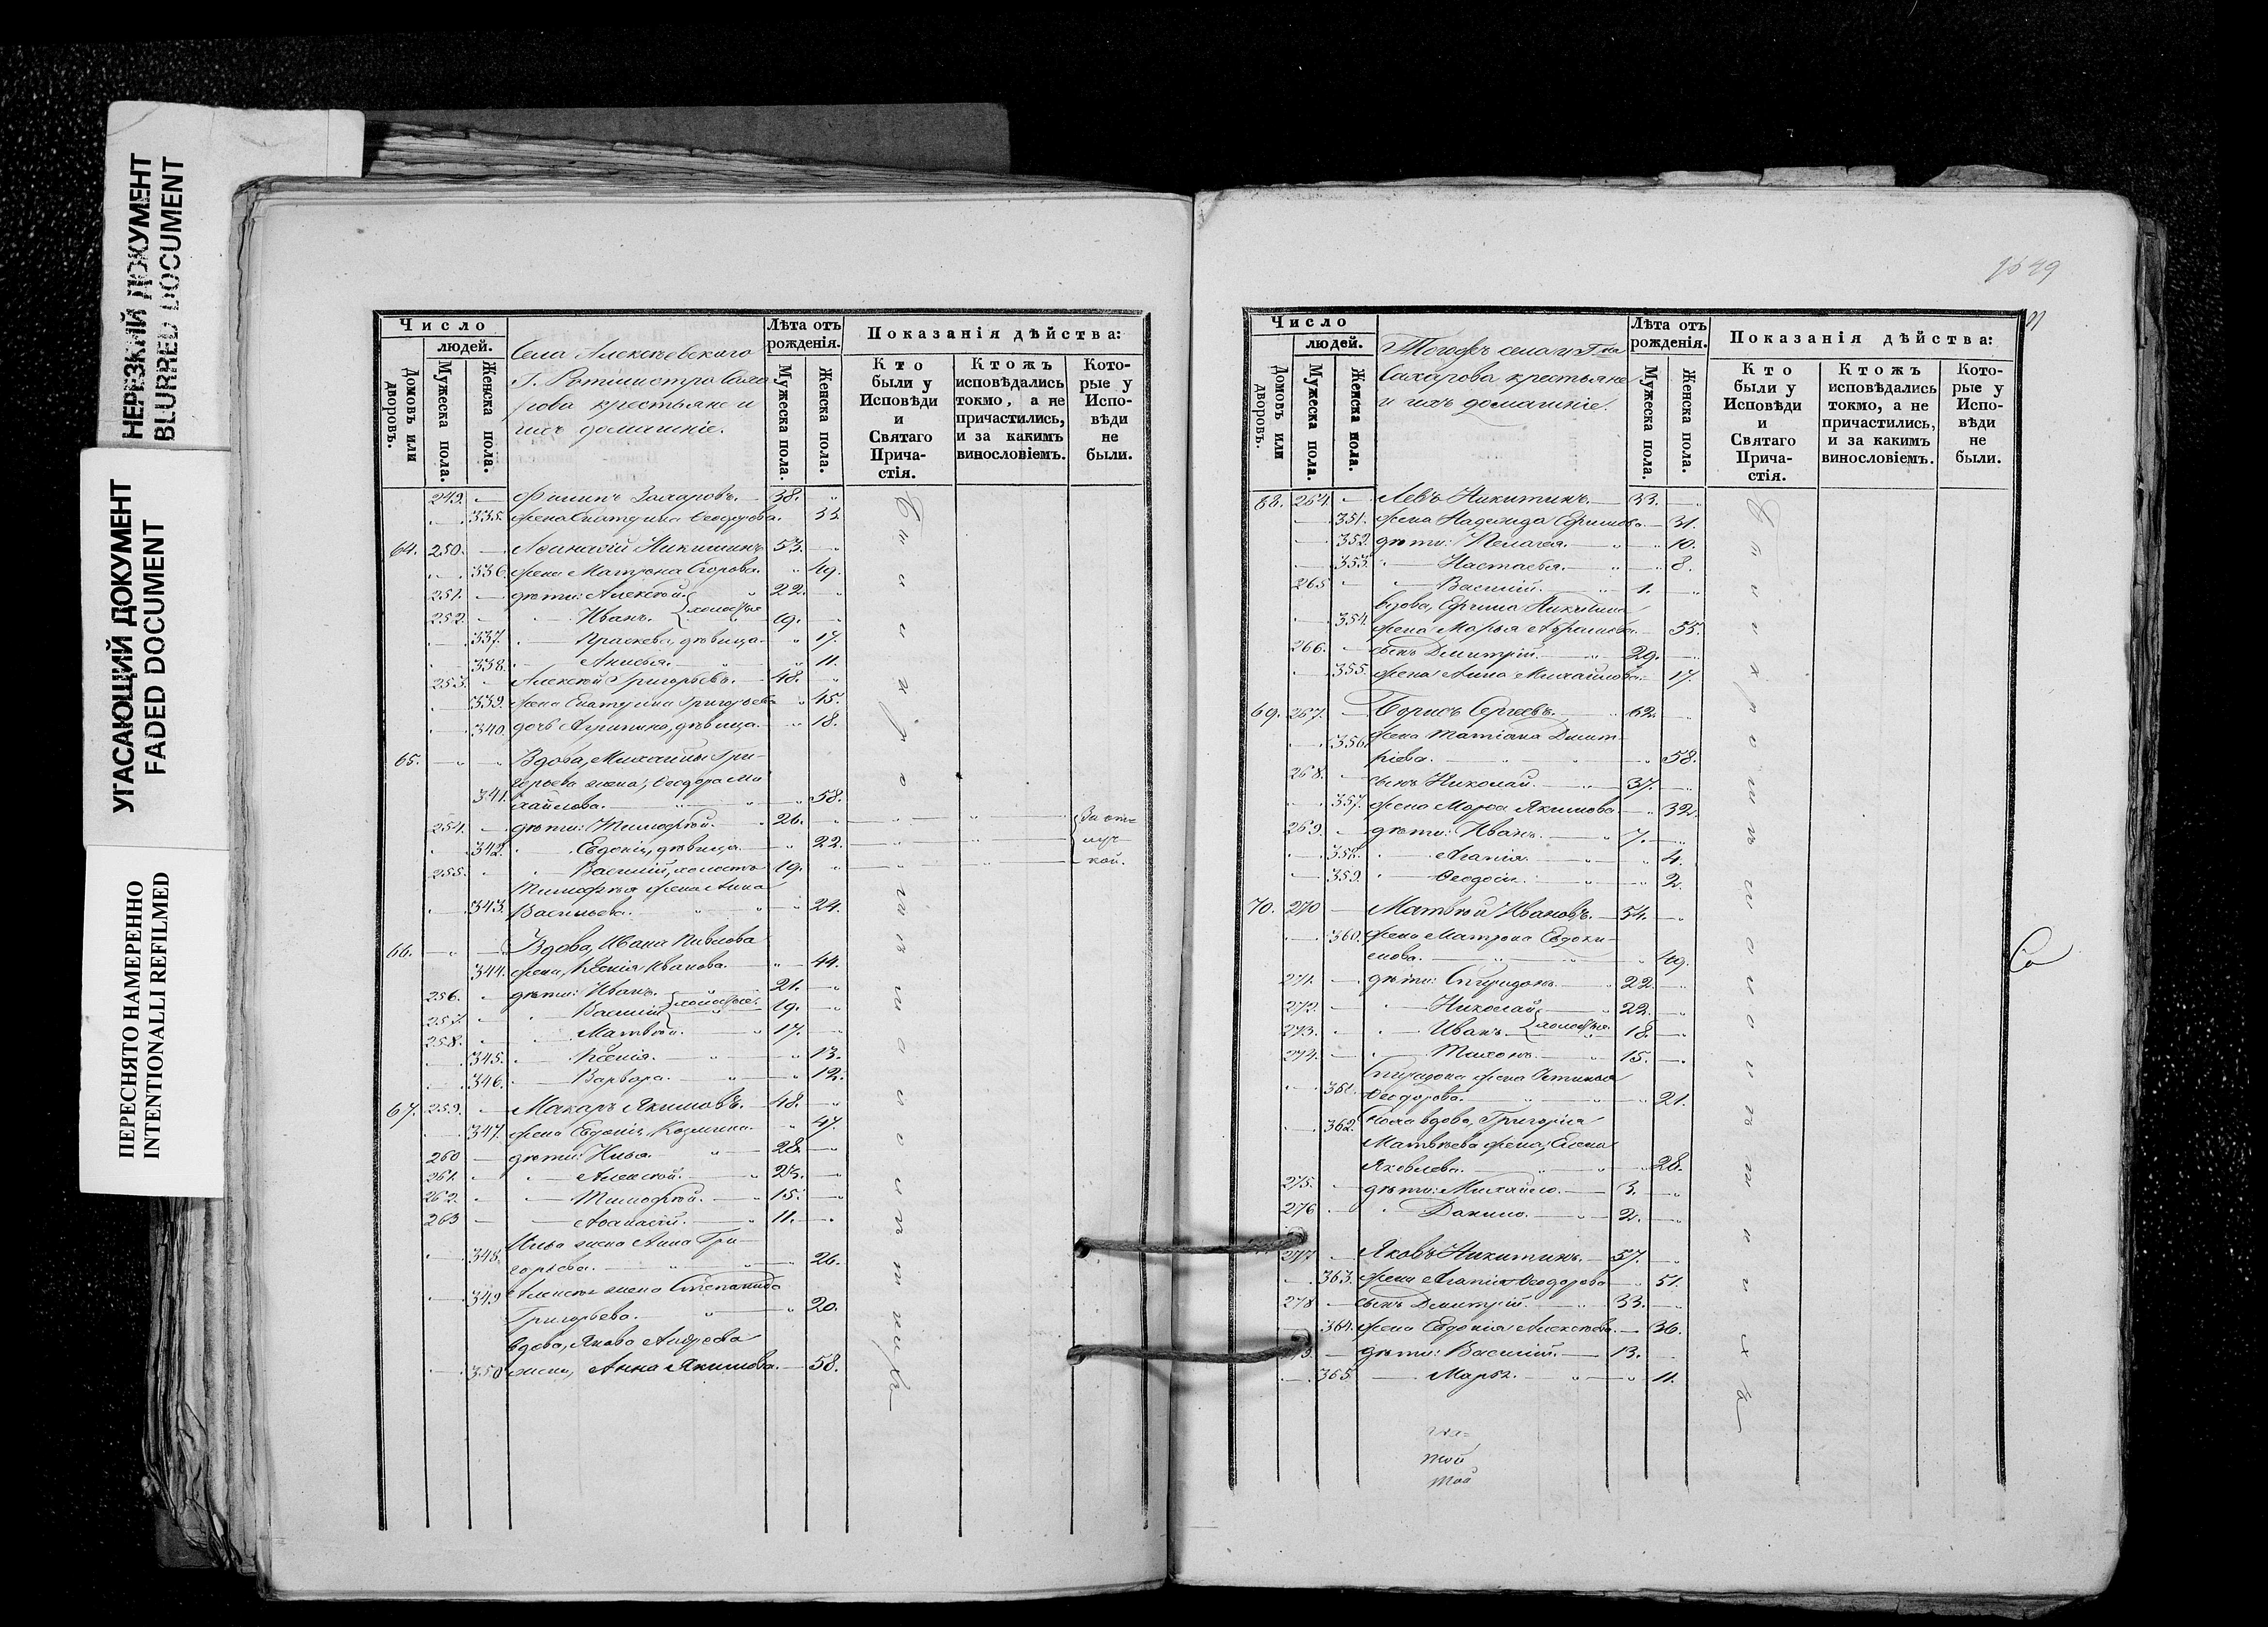 НЕРЕЗКИЙ ДОКУМЕНТ
BLURRED DOCUMENT
УГАСАЮЩИЙ ДОКУМЕНТ
FADED DOCUMENT
ПЕРЕСНЯТО НАМЕРЕННО
INTENTIONALLI REFILMED
Число
Домовъ или дворовъ.
людей.
Мужеска пола.
Женска пола.
Села Алексѣевскаго
Г. Ротмистра Саха
рова крестьяне и
ихъ домашніе.
Лѣта отъ рожденія.
Мужеска пола.
Женска пола.
Показанія дѣйства:
Кто были у Исповѣди и Святаго Прича-стія.
Ктожъ исповѣдались токмо, а не причастились, и за какимъ винословіемъ.
Кото-рые у Испо-вѣди не были.
249. Филипъ Захаровъ. 38.
335. жена Екатерина Ѳеодорова. 33.
64. 250. Аѳанасій Никитинъ 53.
336. жена Матрона Егорова. 49.
251. дѣти: Алексѣй. 22.
252. Иванъ. холостые 19.
337. Праскева, дѣвица 17.
338. Анисья. 11.
253. Алексѣй Григорьевъ. 48.
339. жена Екатерина Григорьева 45.
340. дочь Агрипина, дѣвица. 18.
65. Вдова, Михаилы Гри-
горьева жена, Ѳеодора Ми
341. хайлова. 58.
254. дѣти: Тимофѣй. 26. За от=
342. Евдокія, дѣвица 22. луч-
255. Василій, холостъ 19. кой.
Тимофѣя жена Анна
343. Васильева. 24.
66. Вдова, Ивана Павлова
344. жена, Ксенія Иванова. 44.
256. дѣти: Иванъ. 21.
257. Василій холостые. 19.
258. Матвѣй. 17.
345. Ксенія. 13.
346. Варвара. 12.
67. 259. Макаръ Якимовъ. 48.
347. жена Евдокія Козмина 47.
260 дѣти: Илья. 28.
261. Алексѣй. 23.
262. Тимофѣй. 15.
263 Аѳанасій. 11.
348. Ильи жена Анна Гри-
горьева. 26.
349 Алексѣя жена Степанида
Григорьева. 20.
вдова, Якова Андреева
350 жена, Анна Якимова. 58.
1649
Число
Домовъ или дворовъ.
людей.
Мужеска пола.
Женска пола.
Тогожъ села и Г-на
Сахарова крестьяне
и ихъ домашніе.
Лѣта отъ рожденія.
Мужеска пола.
Женска пола.
Показанія дѣйства:
Кто были у Исповѣди и Святаго Прича-стія.
Ктожъ исповѣдались токмо, а не причастились, и за какимъ винословіемъ.
Кото-рые у Испо-вѣди не были.
68. 264. Левъ Никитинъ. 33.
351. жена Надежда Ефимова 31.
352. дѣти: Пелагея. 10.
353. Настасья. 8.
265 Василій. 1.
вдова, Ефрима Никитина
354. жена Марья Абрамова. 55.
266. сынъ Дмитрій. 29.
355. жена Анна Михайлова. 17.
69. 267. Борисъ Сергѣевъ. 62.
356. жена Татіана Дмит-
ріева. 58.
268. сынъ Николай. 37.
357. жена Марѳа Якимова. 32.
269. дѣти: Иванъ. 7.
358. Агапія. 4.
359. Ѳеодосія. 2.
70. 270 Матвѣй Ивановъ. 54.
360. жена Матрона Евдоки-
мова. 49.
271. дѣти: Спиридонъ. 22.
272. Николай. 22.
273. Иванъ. холостые. 18.
274. Тихонъ. 15.
Спиридона жена Устинья
361. Ѳеодорова. 21.
362. Сноха вдова, Григорія
Матвѣева жена, Елена
Яковлева. 28.
275. дѣти: Михайло. 3.
276 Данило. 2.
277 Яковъ Никитинъ. 57.
363. жена Агапія Ѳеодорова 51.
278. сынъ Дмитрій. 33.
364. жена Евдокія Алексѣева. 36.
дѣти: Василій. 13.
365. Марѳа. 11.
той